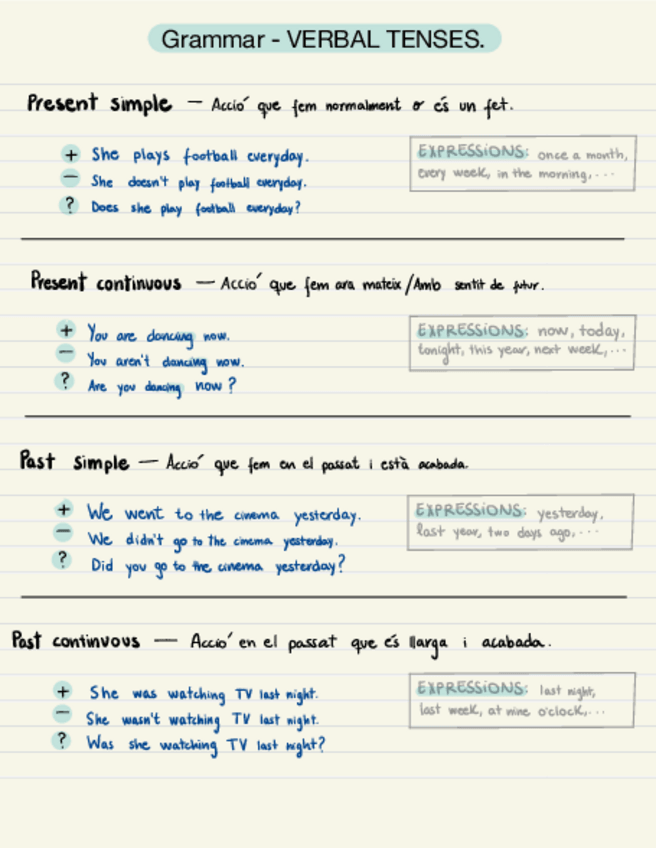 Grammar - VERBAL TENSES.
Present simple — Acció que fem normalment o és un fet.
+ She plays football everyday.
− She doesn't play football everyday.
? Does she play football everyday?
EXPRESSIONS: once a month,
every week, in the morning,...
Present continuous — Acció que fem ara mateix/Amb sentit de futur.
+ You are dancing now.
− You aren't dancing now.
? Are you dancing now?
EXPRESSIONS: now, today,
tonight, this year, next week,...
Past simple — Acció que fem en el passat i està acabada.
+ We went to the cinema yesterday.
− We didn't go to the cinema yesterday.
? Did you go to the cinema yesterday?
EXPRESSIONS: yesterday,
last year, two days ago,...
Past continuous — Acció en el passat que és llarga i acabada.
+ She was watching TV last night.
− She wasn't watching TV last night.
? Was she watching TV last night?
EXPRESSIONS: last night,
last week, at nine o'clock,...